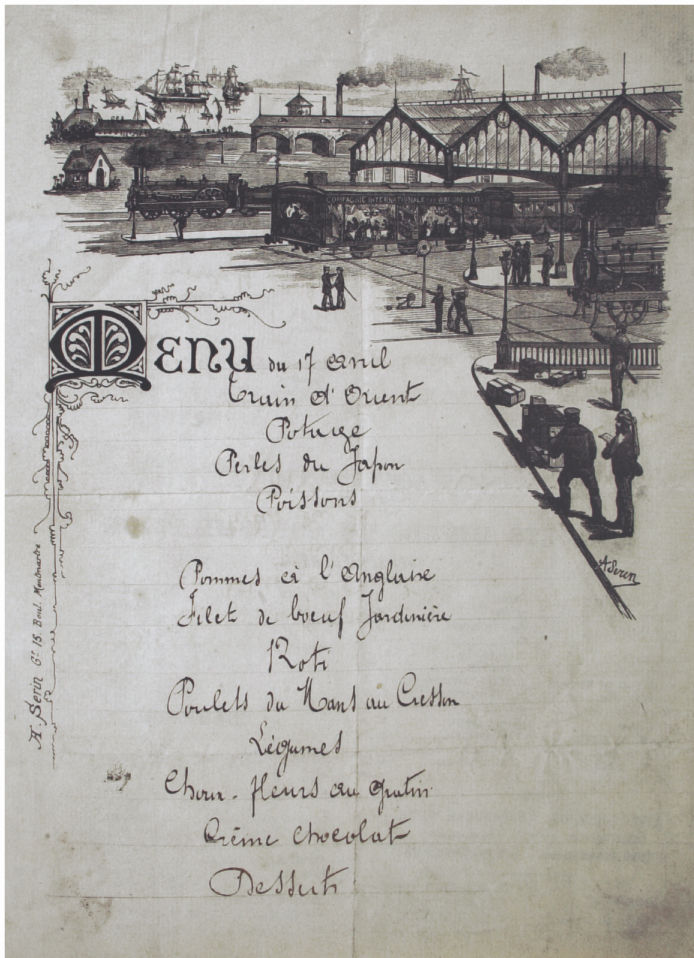 COMPAGNIE INTERNATIONALE
MENU du 17 Avril
Train d'Orient
Potage
Perles du Japon
Poissons
Pommes à l'Anglaise
Filet de boeuf Jardinière
Roti
Poulets du Mans au Cresson
Légumes
Choux-fleurs au gratin
Crème chocolat
Desserts
A Serin
A. Serin Gr. 15. Boul. Montmartre